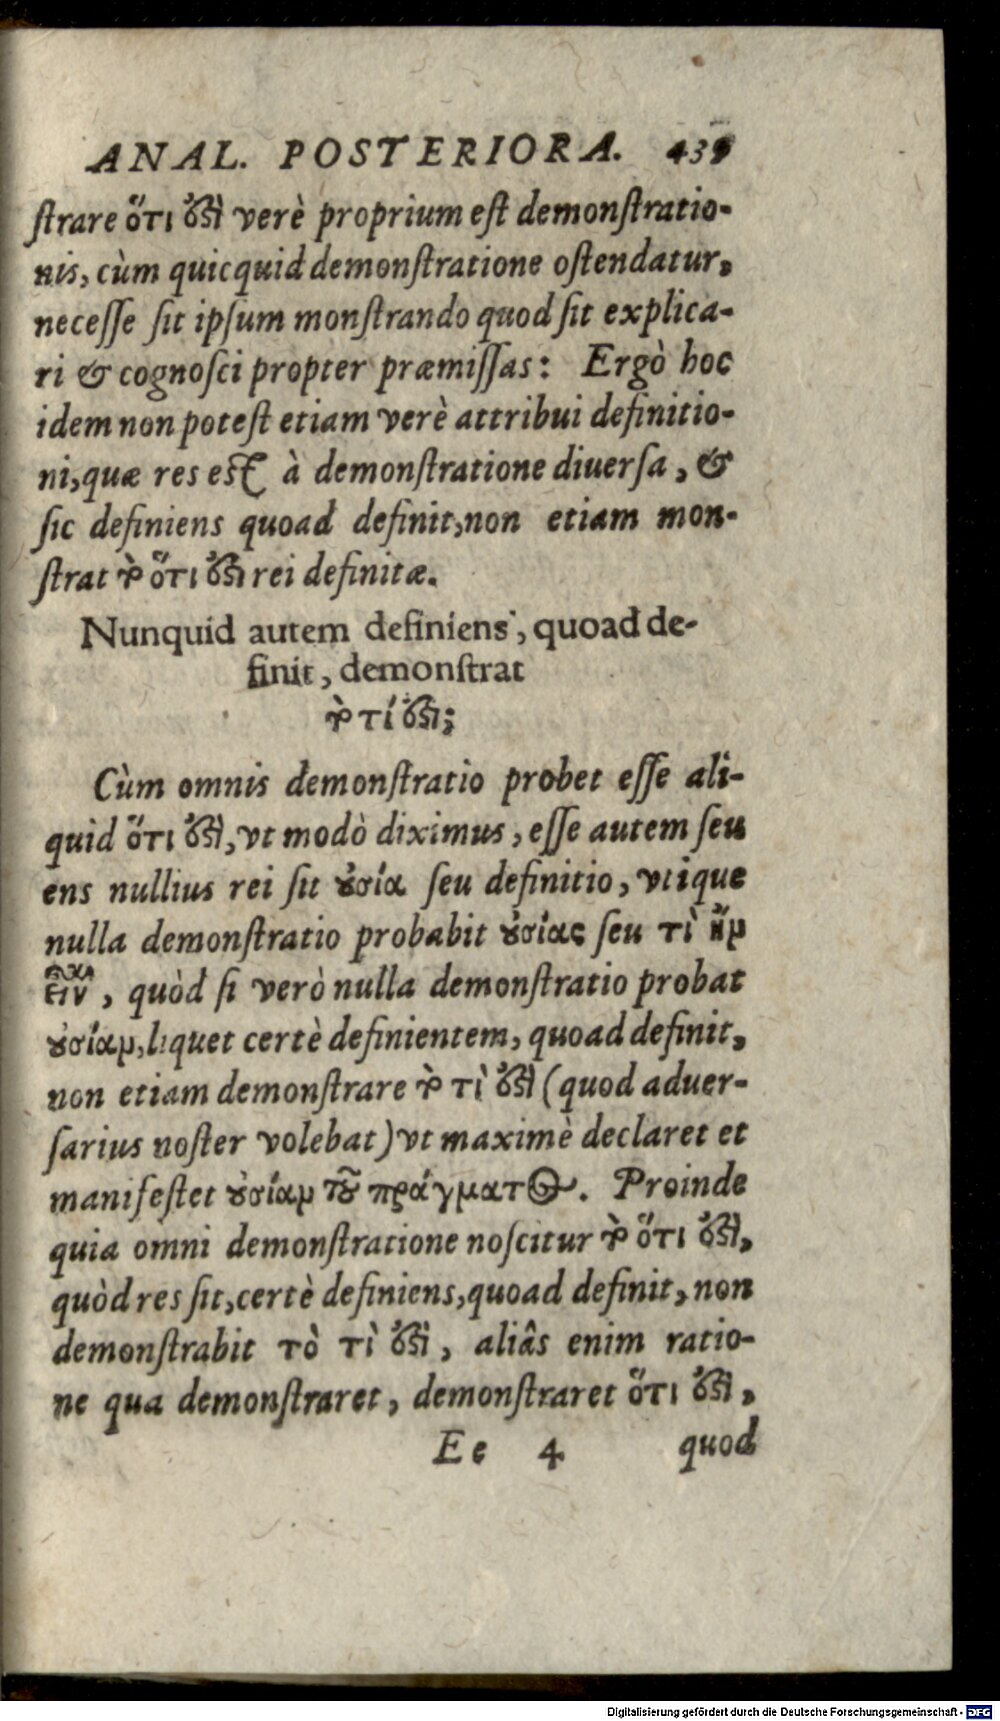 ANAL. POSTERIORA. 439
ſtrare ὅτι ὅϛὶ verè proprium eſt demonſtratio-
nis, cùm quicquid demonſtratione oſtendatur,
neceſſe ſit ipſum monſtrando quod ſit explica-
ri & cognoſci propter præmiſſas: Ergò hoc
idem non poteſt etiam verè attribui definitio-
ni, quæ res eſt à demonſtratione diuerſa, &
ſic definiens quoad definit, non etiam mon-
ſtrat τὸ ὅτι ἔϛι rei definitæ.
Nunquid autem definiens, quoad de-
finit, demonſtrat
τὸ τί ἔϛι;
Cùm omnis demonſtratio probet eſſe ali-
quid ὅτι ἔϛὶ, vt modò diximus, eſſe autem ſeu
ens nullius rei ſit ȣ̓σία ſeu definitio, vtique
nulla demonſtratio probabit ȣ̓σίας ſeu τὶ ἦν
εἶναι, quòd ſi verò nulla demonſtratio probat
ȣ̓σίαν, liquet certè definientem, quoad definit,
non etiam demonſtrare τὸ τὶ ἔϛὶ (quod aduer-
ſarius noſter volebat) vt maximè declaret et
manifeſtet ȣ̓σίαν τȣ͂ πράγματος. Proinde
quia omni demonſtratione noſcitur τὸ ὅτι ἔϛὶ,
quòd res ſit, certè definiens, quoad definit, non
demonſtrabit τὸ τὶ ἔϛὶ, aliâs enim ratio-
ne qua demonſtraret, demonſtraret ὅτι ἔϛὶ,
Ee 4 quod
Digitalisierung gefördert durch die Deutsche Forschungsgemeinschaft - DFG